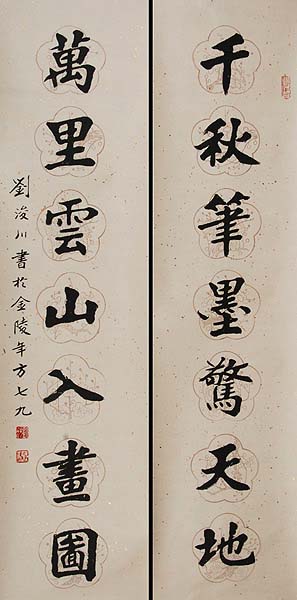 千秋筆墨驚天地
萬里雲山入畫圖
劉浚川書於金陵年方七九